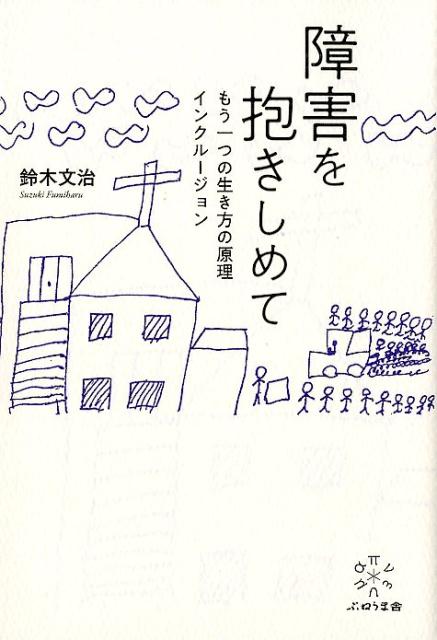 障害を
抱きしめて
もう一つの生き方の原理
インクルージョン
鈴木文治
Suzuki Fumiharu
ぷねうま舎